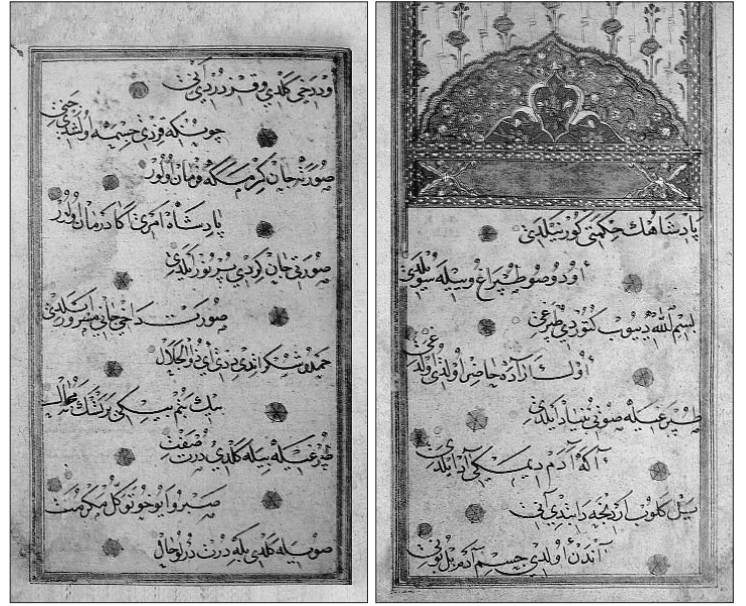 پادشاهك حكمتى كور نيلدى
أود و صو طپراغ و ييله سويلدى
بسم الله ديیوب كتوردى طپرغى
أول ارآده حاضر أولدى أول دغى
طپرغيله صويى بنياد ايلدى
آكه آدم ديمكى آد ايلدى
ييل كلوب اردنجه دپتدى آنى
آندن أولدى جسم آدم بل بونى
اود دخى كلدى و قزدردى آنى
چونكه قزدى جسمه أولشدى جانى
صورته جان كرمكه فرمان اولور
پادشاه امرى اكا درمان اولور
صورتى جان كردى پر نور ايلدى
صورت داخى جانى مسرور ايلدى
حمد و شكر اتدى ددى اى ذوالجلال
بيك بنم بيكى يرتسك نه محال
طپرغيله بيله كلدى درت صفت
صبر و ايو خو توكل مكرمت
صويله كلدى بله درت درلو حال